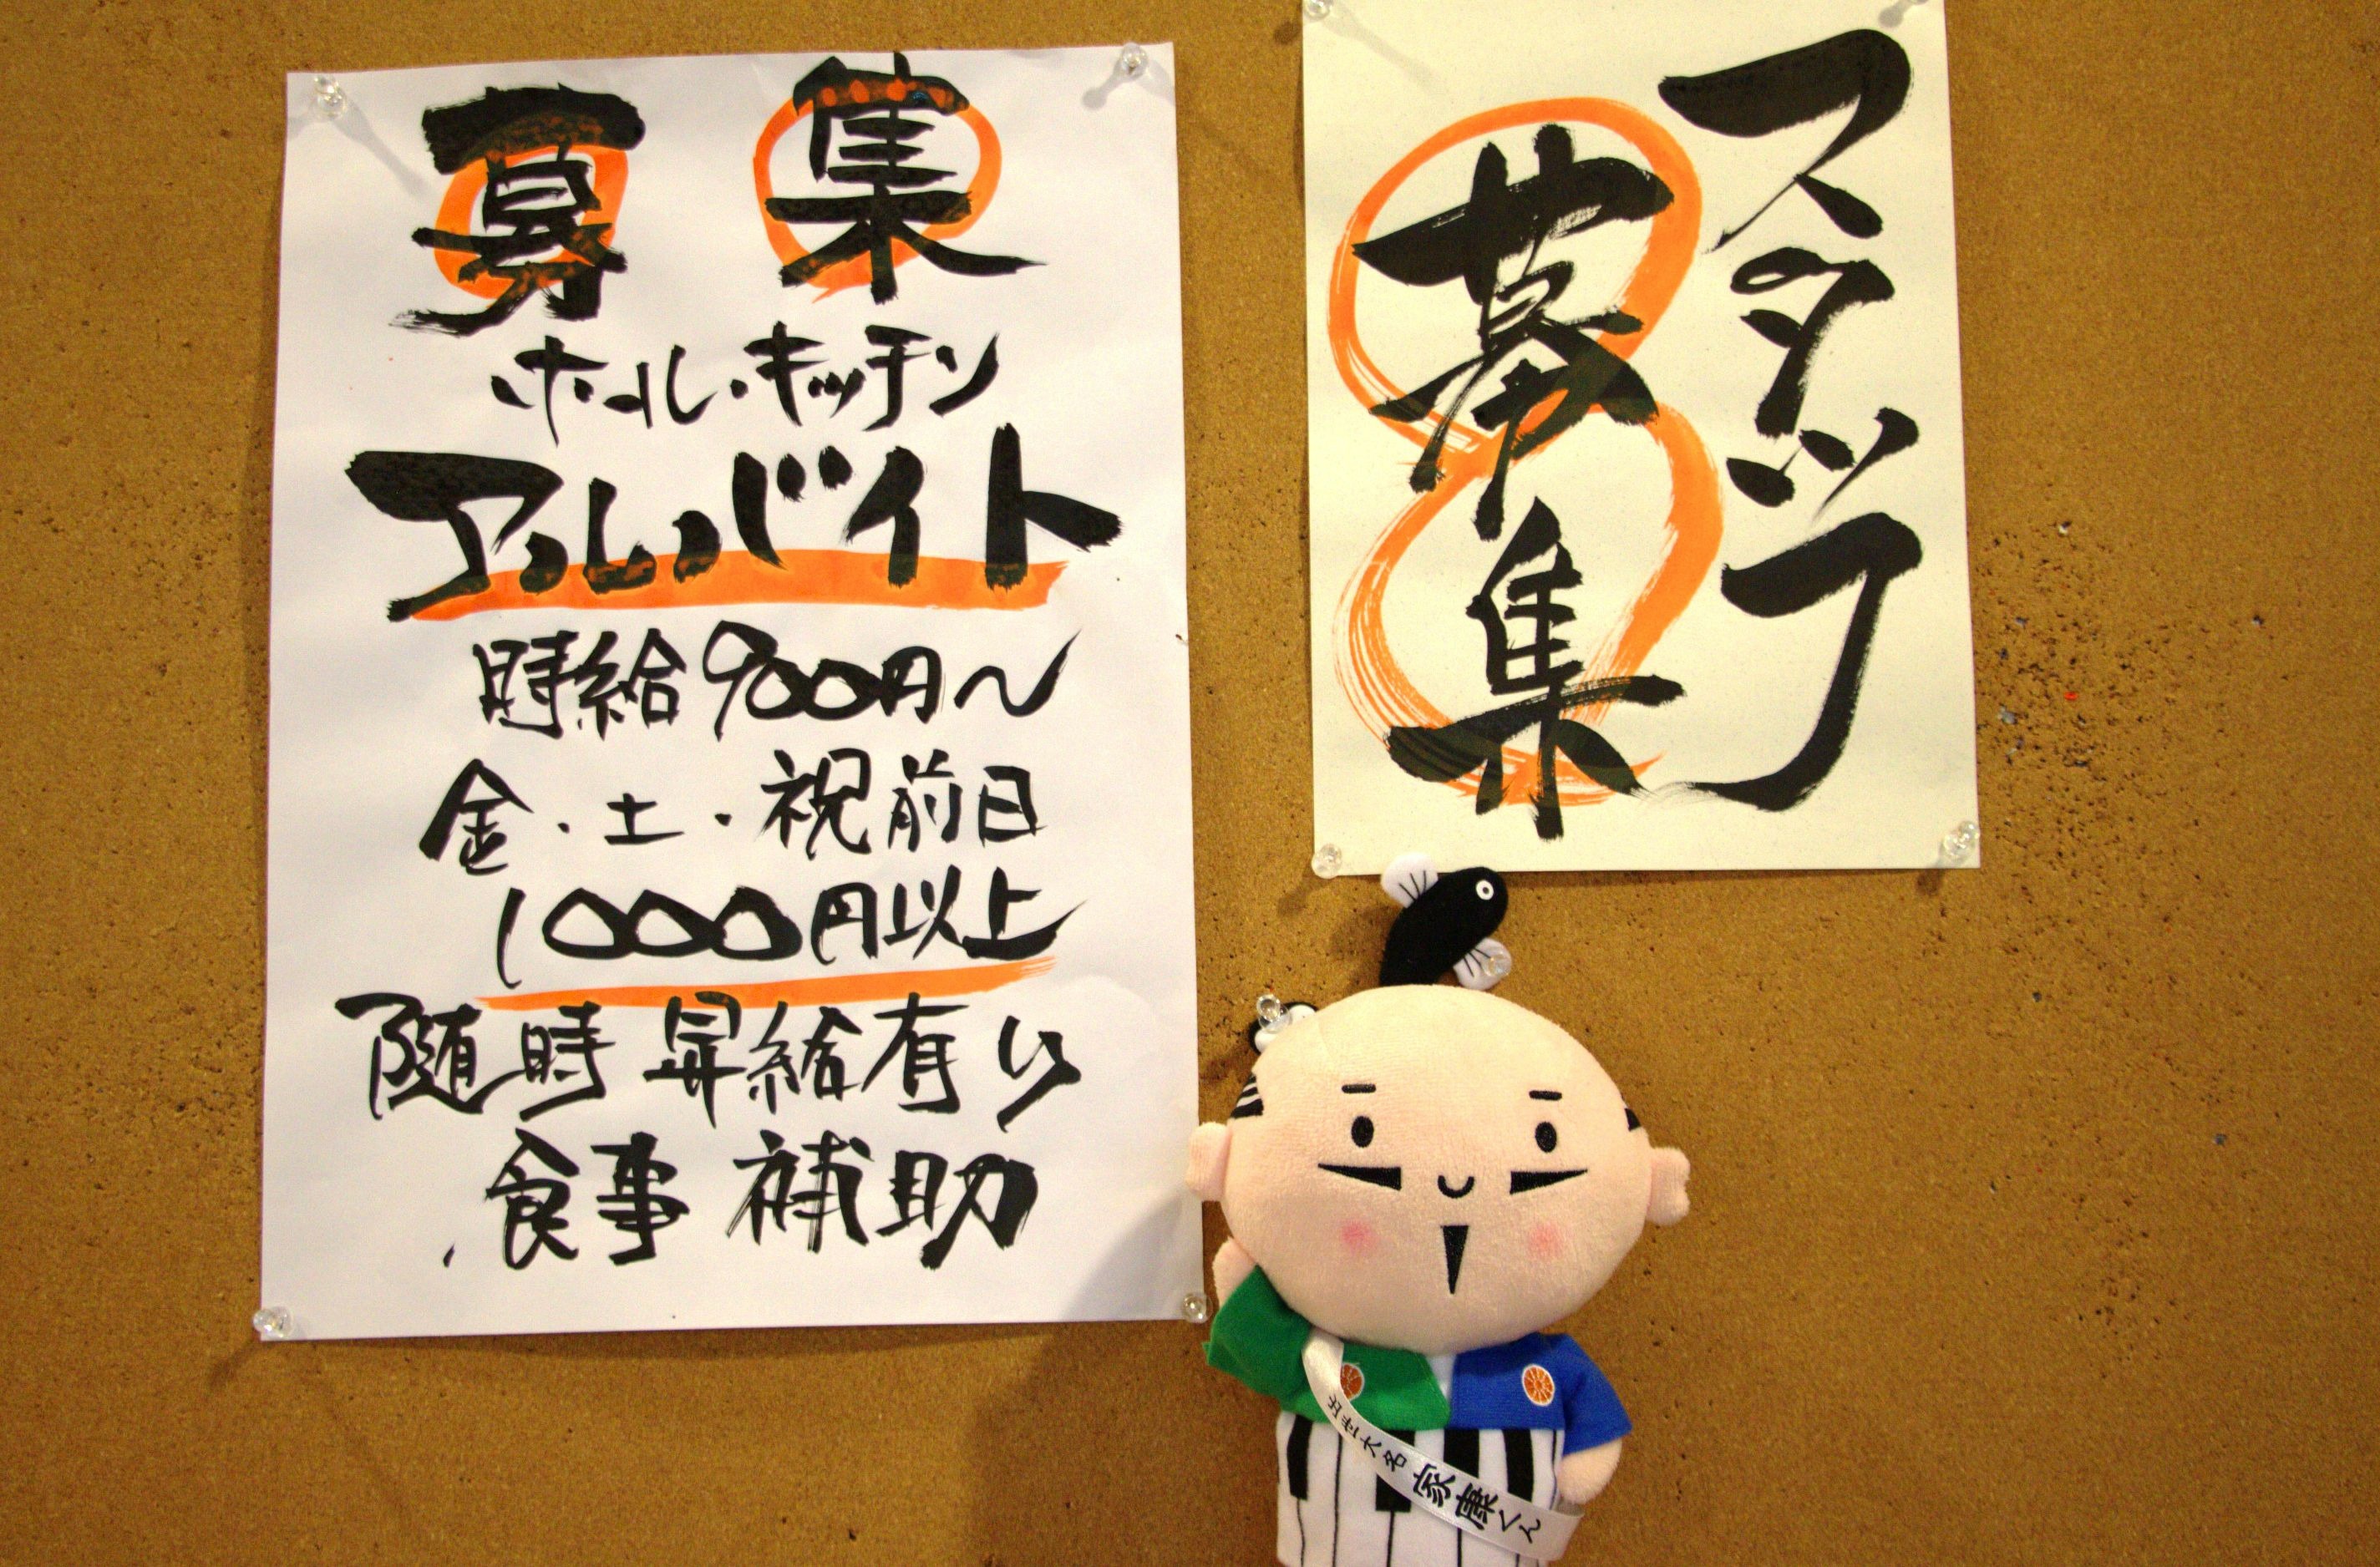 募集
ホール・キッチン
アルバイト
時給900円〜
金・土・祝前日
1000円以上
随時昇給有り
食事補助
スタッフ
募集
出世大名家康くん